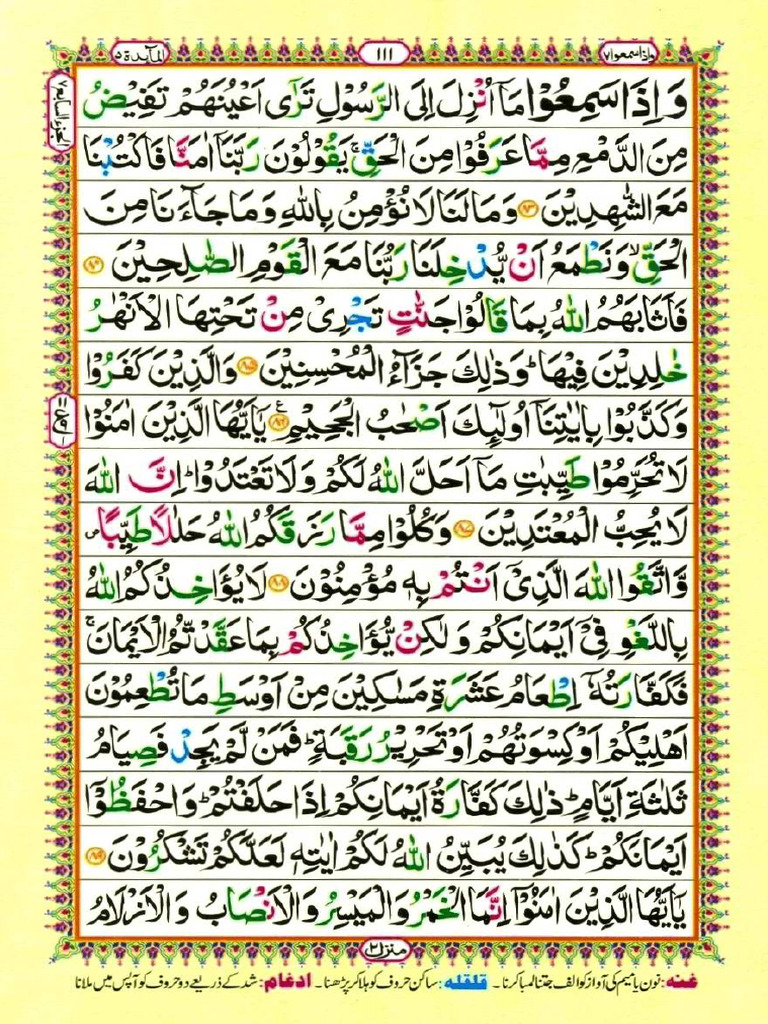 المآىدة ٥
١١١
واذاسمعوا ٧
الجزء السابع ٧
وَ اِذَا سَمِعُوۡا مَاۤ اُنۡزِلَ اِلَى الرَّسُوۡلِ تَرٰٓى اَعۡيُنَهُمۡ تَفِيۡضُ
مِنَ الدَّمۡعِ مِمَّا عَرَفُوۡا مِنَ الۡحَـقِّ‌ۚ يَقُوۡلُوۡنَ رَبَّنَاۤ اٰمَنَّا فَاكۡتُبۡنَا
مَعَ الشّٰهِدِيۡنَ ﴿۸۳﴾ وَمَا لَـنَا لَا نُؤۡمِنُ بِاللّٰهِ وَمَا جَآءَنَا مِنَ
الۡحَـقِّۙ وَنَطۡمَعُ اَنۡ يُّدۡخِلَـنَا رَبُّنَا مَعَ الۡقَوۡمِ الصّٰلِحِيۡنَ ﴿۸۴﴾
فَاَثَابَهُمُ اللّٰهُ بِمَا قَالُوۡا جَنّٰتٍ تَجۡرِىۡ مِنۡ تَحۡتِهَا الۡاَنۡهٰرُ
خٰلِدِيۡنَ فِيۡهَا‌ ؕ وَذٰلِكَ جَزَآءُ الۡمُحۡسِنِيۡنَ ﴿۸۵﴾ وَالَّذِيۡنَ كَفَرُوۡا
وَكَذَّبُوۡا بِاٰيٰتِنَاۤ اُولٰٓٮِٕكَ اَصۡحٰبُ الۡجَحِيۡمِ ﴿۸۶﴾ يٰۤاَيُّهَا الَّذِيۡنَ اٰمَنُوۡا
لَا تُحَرِّمُوۡا طَيِّبٰتِ مَاۤ اَحَلَّ اللّٰهُ لَـكُمۡ وَلَا تَعۡتَدُوۡا‌ ؕ اِنَّ اللّٰهَ
لَا يُحِبُّ الۡمُعۡتَدِيۡنَ ﴿۸۷﴾ وَكُلُوۡا مِمَّا رَزَقَكُمُ اللّٰهُ حَلٰلًا طَيِّبًا‌ ص
وَّاتَّقُوا اللّٰهَ الَّذِىۡۤ اَنۡـتُمۡ بِهٖ مُؤۡمِنُوۡنَ ﴿۸۸﴾ لَا يُؤَاخِذُكُمُ اللّٰهُ
بِاللَّغۡوِ فِىۡۤ اَيۡمَانِكُمۡ وَلٰـكِنۡ يُّؤَاخِذُكُمۡ بِمَا عَقَّدْتُّمُ الۡاَيۡمَانَ‌ ۚ
فَكَفَّارَتُهٗۤ اِطۡعَامُ عَشَرَةِ مَسٰكِيۡنَ مِنۡ اَوۡسَطِ مَا تُطۡعِمُوۡنَ
اَهۡلِيۡكُمۡ اَوۡ كِسۡوَتُهُمۡ اَوۡ تَحۡرِيۡرُ رَقَبَةٍ‌ ؕ فَمَنۡ لَّمۡ يَجِدۡ فَصِيَامُ
ثَلٰثَةِ اَيَّامٍ‌ ؕ ذٰلِكَ كَفَّارَةُ اَيۡمَانِكُمۡ اِذَا حَلَفۡتُمۡ‌ ؕ وَاحۡفَظُوۡۤا
اَيۡمَانَكُمۡ‌ ؕ كَذٰلِكَ يُبَيِّنُ اللّٰهُ لَـكُمۡ اٰيٰتِهٖ لَعَلَّكُمۡ تَشۡكُرُوۡنَ ﴿۸۹﴾
يٰۤاَيُّهَا الَّذِيۡنَ اٰمَنُوۡۤا اِنَّمَا الۡخَمۡرُ وَالۡمَيۡسِرُ وَالۡاَنۡصَابُ وَالۡاَزۡلَامُ
منزل ٢
غنه: نون یا میم کی آواز کو الف جتنا لمبا کرنا۔ قلقله: ساکن حروف کو ہلا کر پڑھنا۔ ادغام: شد کے ذریعے دو حروف کو آپس میں ملانا